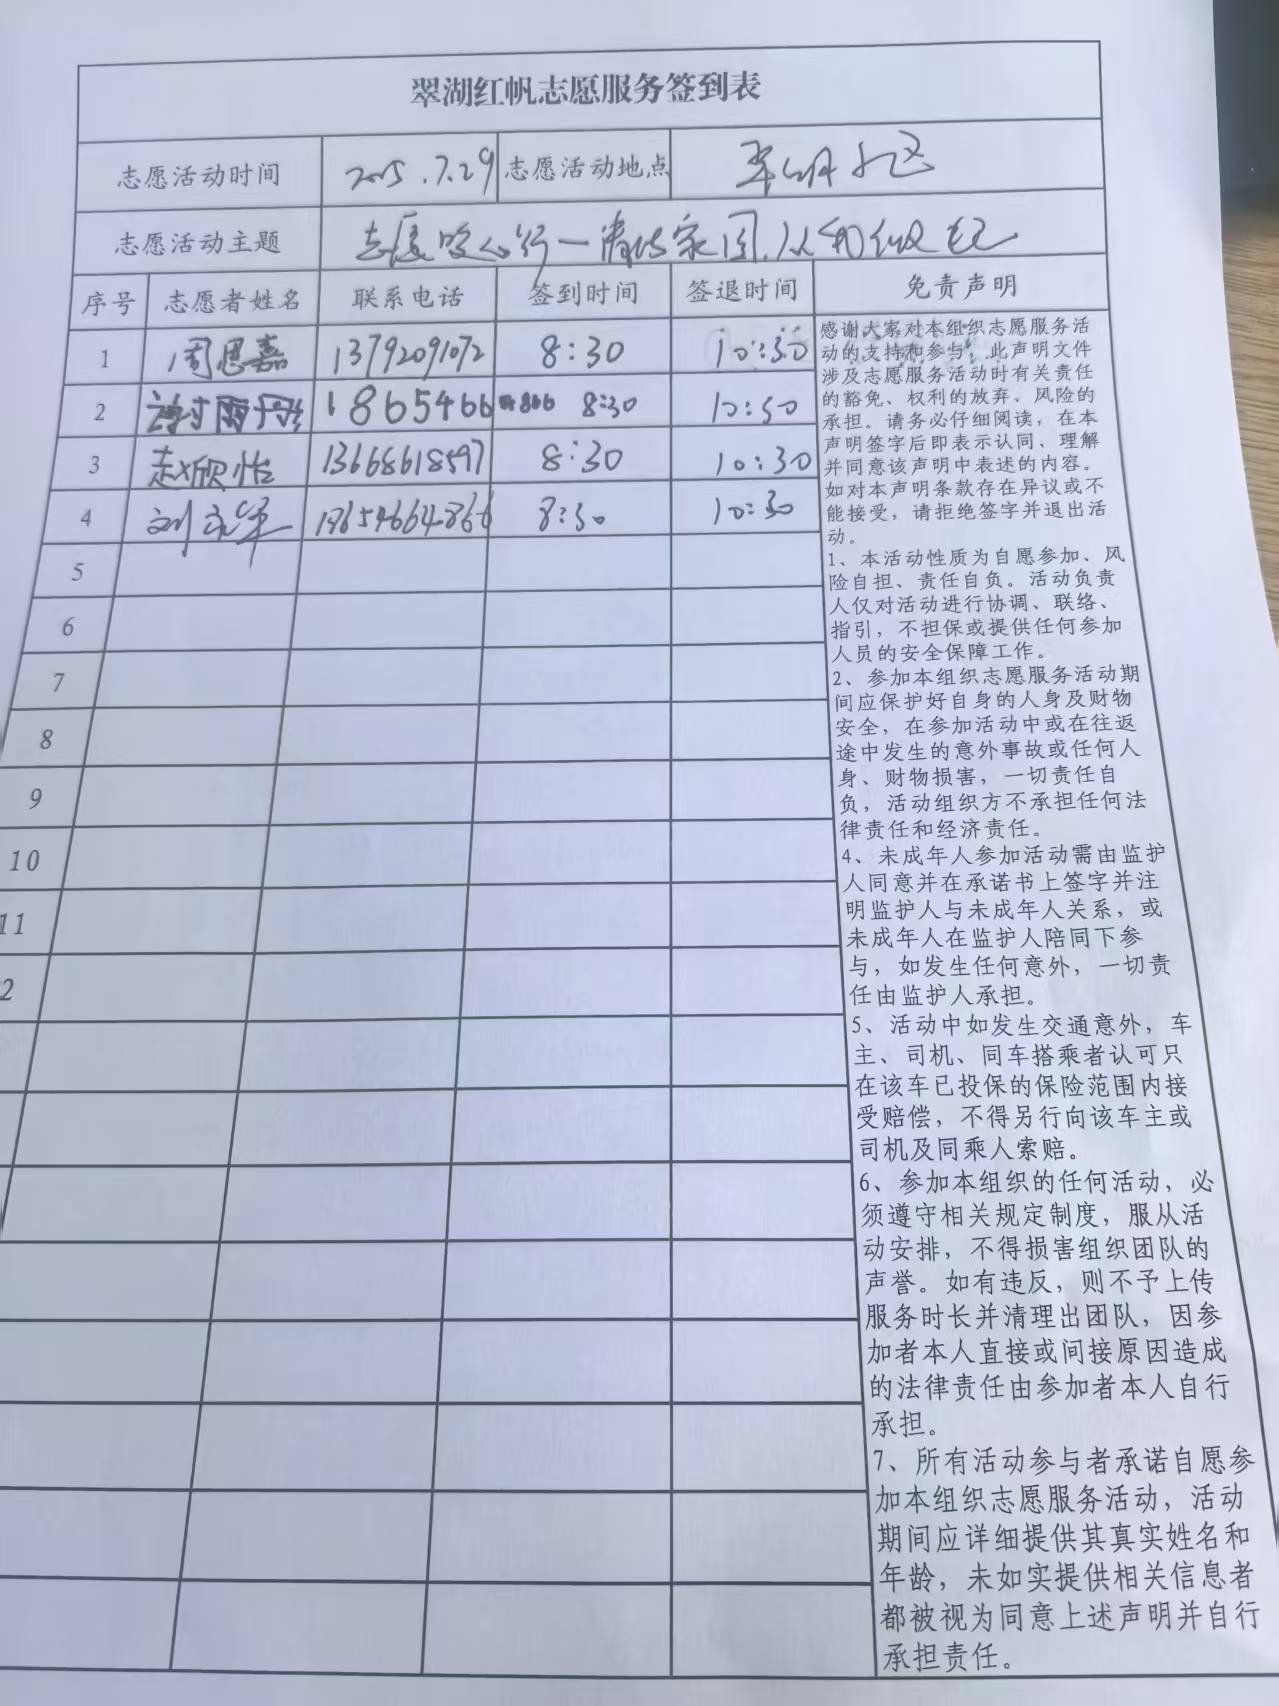 翠湖红帆志愿服务签到表
志愿活动时间 2025.7.29 志愿活动地点 翠湖小区
志愿活动主题 志愿暖心行一清洁家园,从
序号 志愿者姓名 联系电话 签到时间 签退时间 免责声明
1 周恩嘉 13792091072 8:30 10:30
2 1865466 866 8:30 10:30
3 赵欣怡 13668618597 8:30 10:30
4 刘 8:30 10:30
5
6
7
8
9
10
11
2
感谢大家对本组织志愿服务活
动的支持和参与！此声明文件
涉及志愿服务活动时有关责任
的豁免、权利的放弃、风险的
承担。请务必仔细阅读，在本
声明签字后即表示认同、理解
并同意该声明中表述的内容。
如对本声明条款存在异议或不
能接受，请拒绝签字并退出活
动。
1、本活动性质为自愿参加、风
险自担、责任自负。活动负责
人仅对活动进行协调、联络、
指引，不担保或提供任何参加
人员的安全保障工作。
2、参加本组织志愿服务活动期
间应保护好自身的人身及财物
安全，在参加活动中或在往返
途中发生的意外事故或任何人
身、财物损害，一切责任自
负，活动组织方不承担任何法
律责任和经济责任。
4、未成年人参加活动需由监护
人同意并在承诺书上签字并注
明监护人与未成年人关系，或
未成年人在监护人陪同下参
与，如发生任何意外，一切责
任由监护人承担。
5、活动中如发生交通意外，车
主、司机、同车搭乘者认可只
在该车已投保的保险范围内接
受赔偿，不得另行向该车主或
司机及同乘人索赔。
6、参加本组织的任何活动，必
须遵守相关规定制度，服从活
动安排，不得损害组织团队的
声誉。如有违反，则不予上传
服务时长并清理出团队，因参
加者本人直接或间接原因造成
的法律责任由参加者本人自行
承担。
7、所有活动参与者承诺自愿参
加本组织志愿服务活动，活动
期间应详细提供其真实姓名和
年龄，未如实提供相关信息者
都被视为同意上述声明并自行
承担责任。